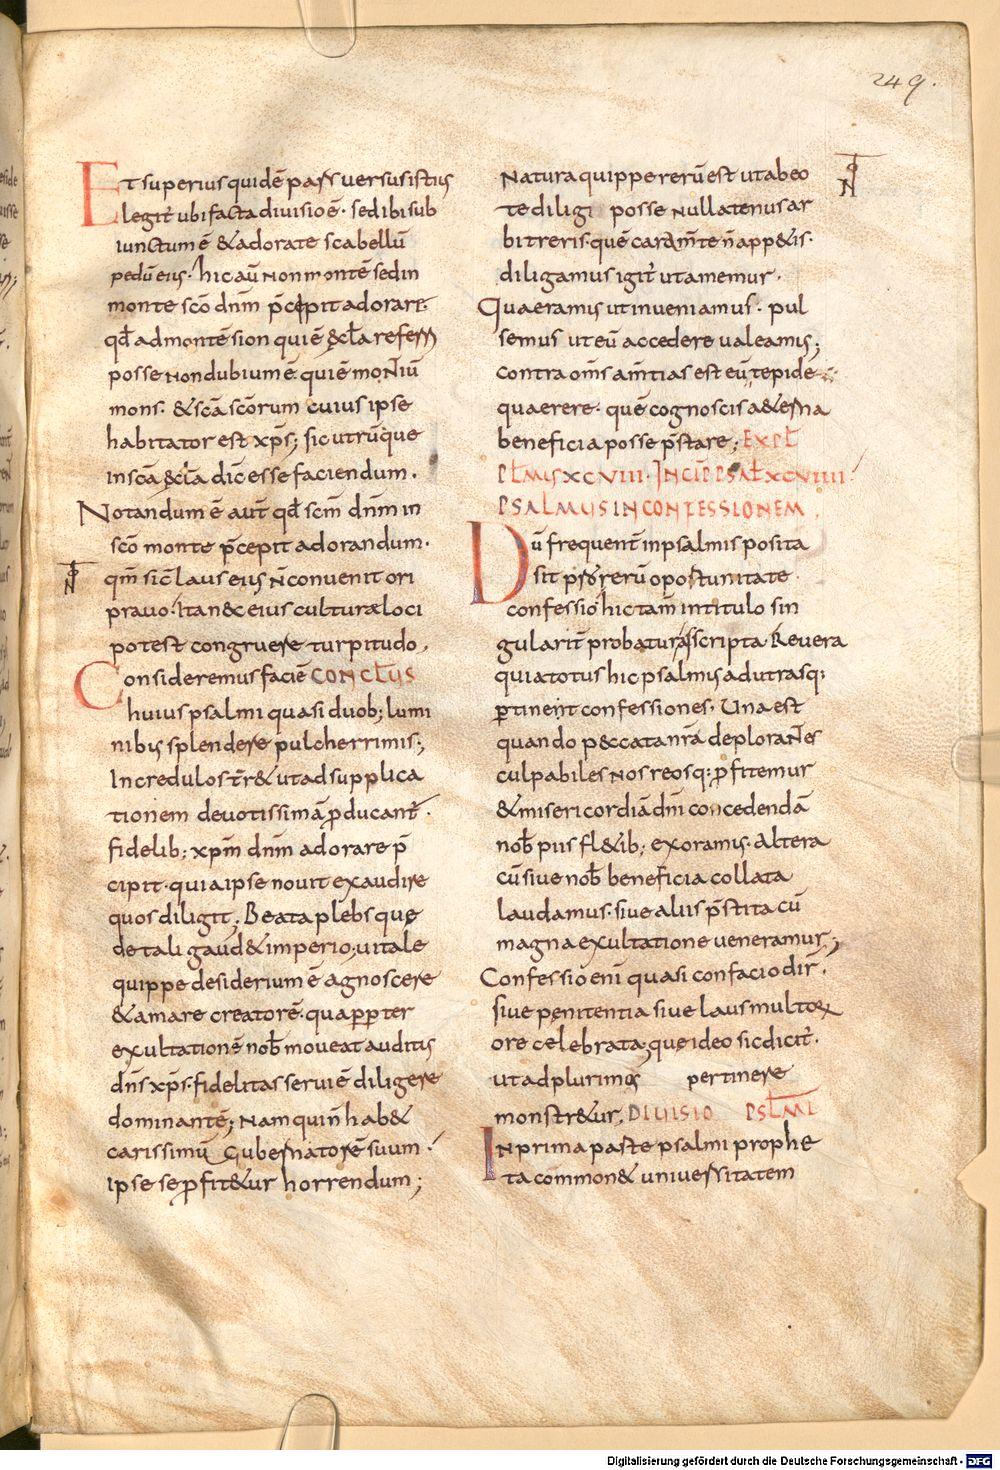 249.
Et superius quidē pars uersus istius
legit̄ ubi facta diuisio ē· sed ibi sub
iunctum ē &adorate scabellū
pedū eius· hic aū non montē sed in
monte scō dnm̄ p̄cepit adorare·
qd̄ ad montē sion qui ē &cl̄a referri
posse non dubium ē· qui ē montiū
mons· & scā scōrum cuius ipse
habitator est xp̄s; sic utrūque
in scā &cl̄a dic̄ esse faciendum·
Notandum ē aut̄ qd̄ scm̄ dnm̄ in
scō monte p̄cepit adorandum·
qm̄ sic̄ laus eius n̄ conuenit ori
prauo· Ita n& eius culturæ loci
potest congruere turpitudo,
Consideremus faciē CONCLUS
huius psalmi quasi duob; lumi
nibus splendere pulcherrimis;
Incredulos t̄r& ut ad supplica
tionem deuotissimā p̄ducant̄·
fidelib; xpm̄ dnm̄ adorare p̄
cipit· quia ipse nouit exaudire
quos diligit; Beata plebs que
de tali gaud& imperio; uitale
quippe desiderium ē agnoscere
& amare creatorē· quapp̄ter
exultationē nob̄ moueat auditus
dn̄s xp̄s· fidelitas seruiē diligere
dominantē; Nam qui n̄ hab&
carissimū Gubernatorē suum·
ipse se p̄fit&ur horrendum;
Natura quippe rerū est ut abeo
te diligi posse nullatenus ar
bitreris quē car̄ am̄te n̄ app&is·
diligamus igit̄ ut amemur·
Quaeramus ut inueniamus· pul
semus ut eū accedere ualeamus;
Contra om̄s am̄tias est eū tepide
quaerere· quē cognoscis a&erna
beneficia posse p̄stare; EXPL̄
PL̄MUS XCVIII· INCIP̄ PSAL̄ XCVIIII·
PSALMUS IN CONFESSIONEM.
Dū frequent̄ in psalmis posita
sit p̄ rerū oportunitate
confessio hic tam̄ in titulo sin
gularit̄ probatur asscripta Reuera
quia totus hic psalmus ad utrasq;
p̄tinent confessiones· Una est
quando p&ccata nr̄a deplorantes
culpabiles nos reosq; p̄fitemur
& misericordiā dn̄i concedendā
nob̄ piis fl&ib; exoramus· Altera
cū siue nob̄ beneficia collata
laudamus· siue aliis p̄stita cū
magna exultatione ueneramur;
Confessio enī quasi confacio dir̄·
siue penitentia siue laus multoꝝ
ore celebrata; que ideo sic dicit̄·
ut ad plurimos pertinere
monstr&ur, DIUISIO PSL̄MI
In prima parte psalmi prophe
ta common& uniuersitatem
Digitalisierung gefördert durch die Deutsche Forschungsgemeinschaft - DFG